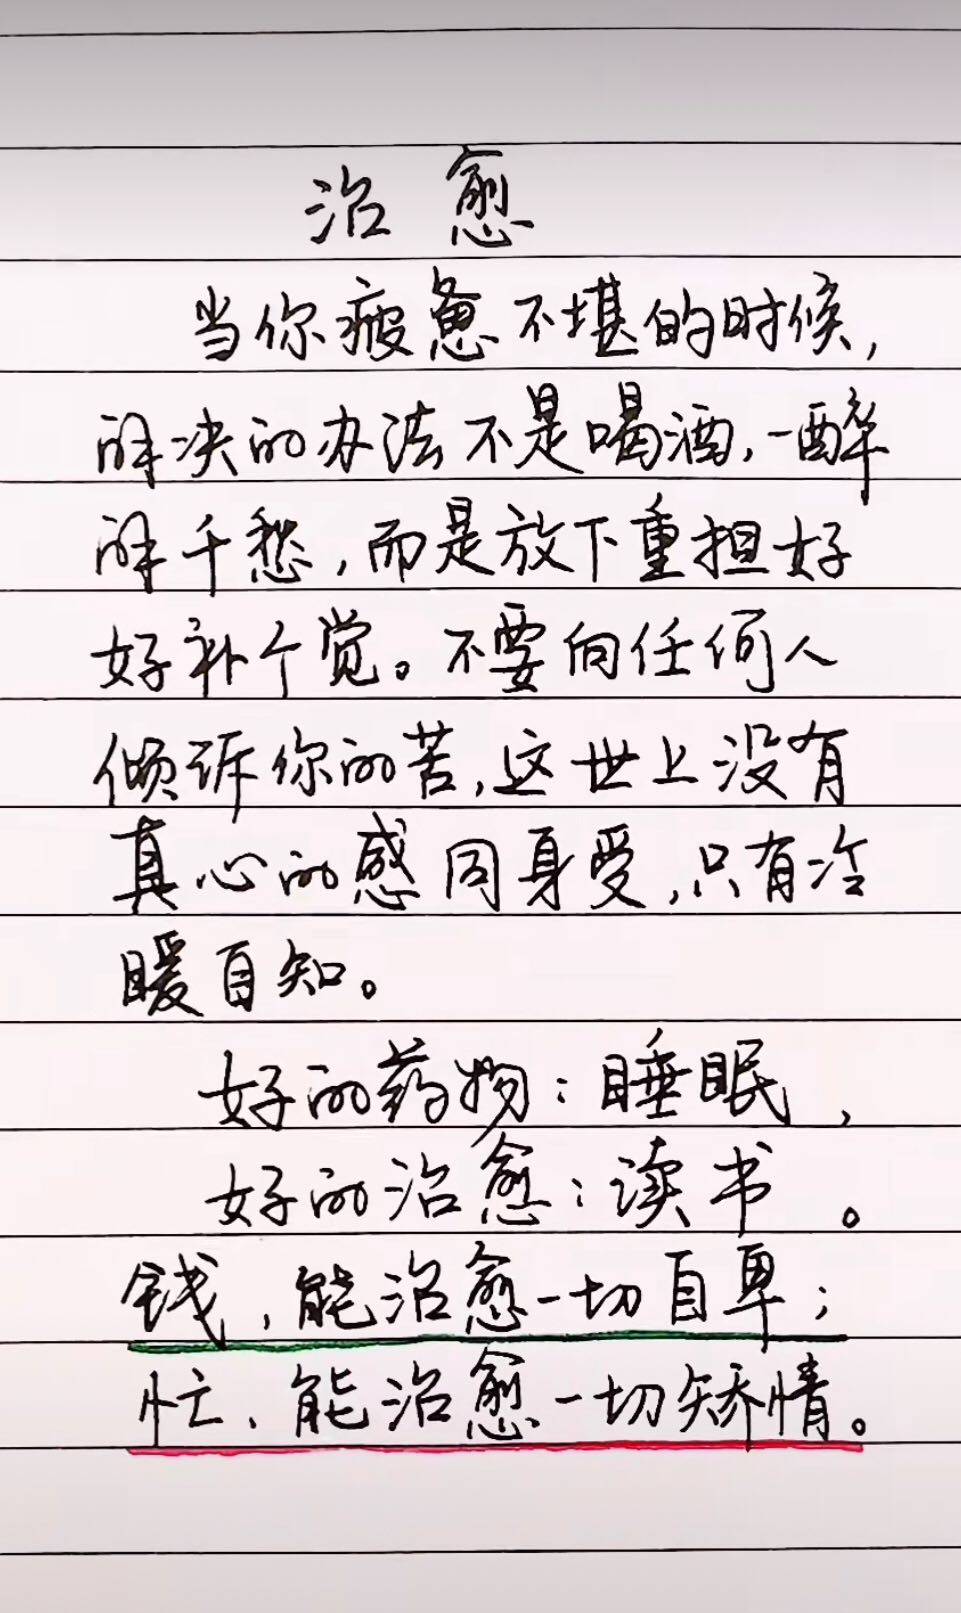 治愈
当你疲惫不堪的时候，
解决的办法不是喝酒，一醉
解千愁，而是放下重担好
好补个觉。不要向任何人
倾诉你的苦，这世上没有
真心的感同身受，只有冷
暖自知。
好的药物：睡眠，
好的治愈：读书。
钱，能治愈一切自卑；
忙、能治愈一切矫情。